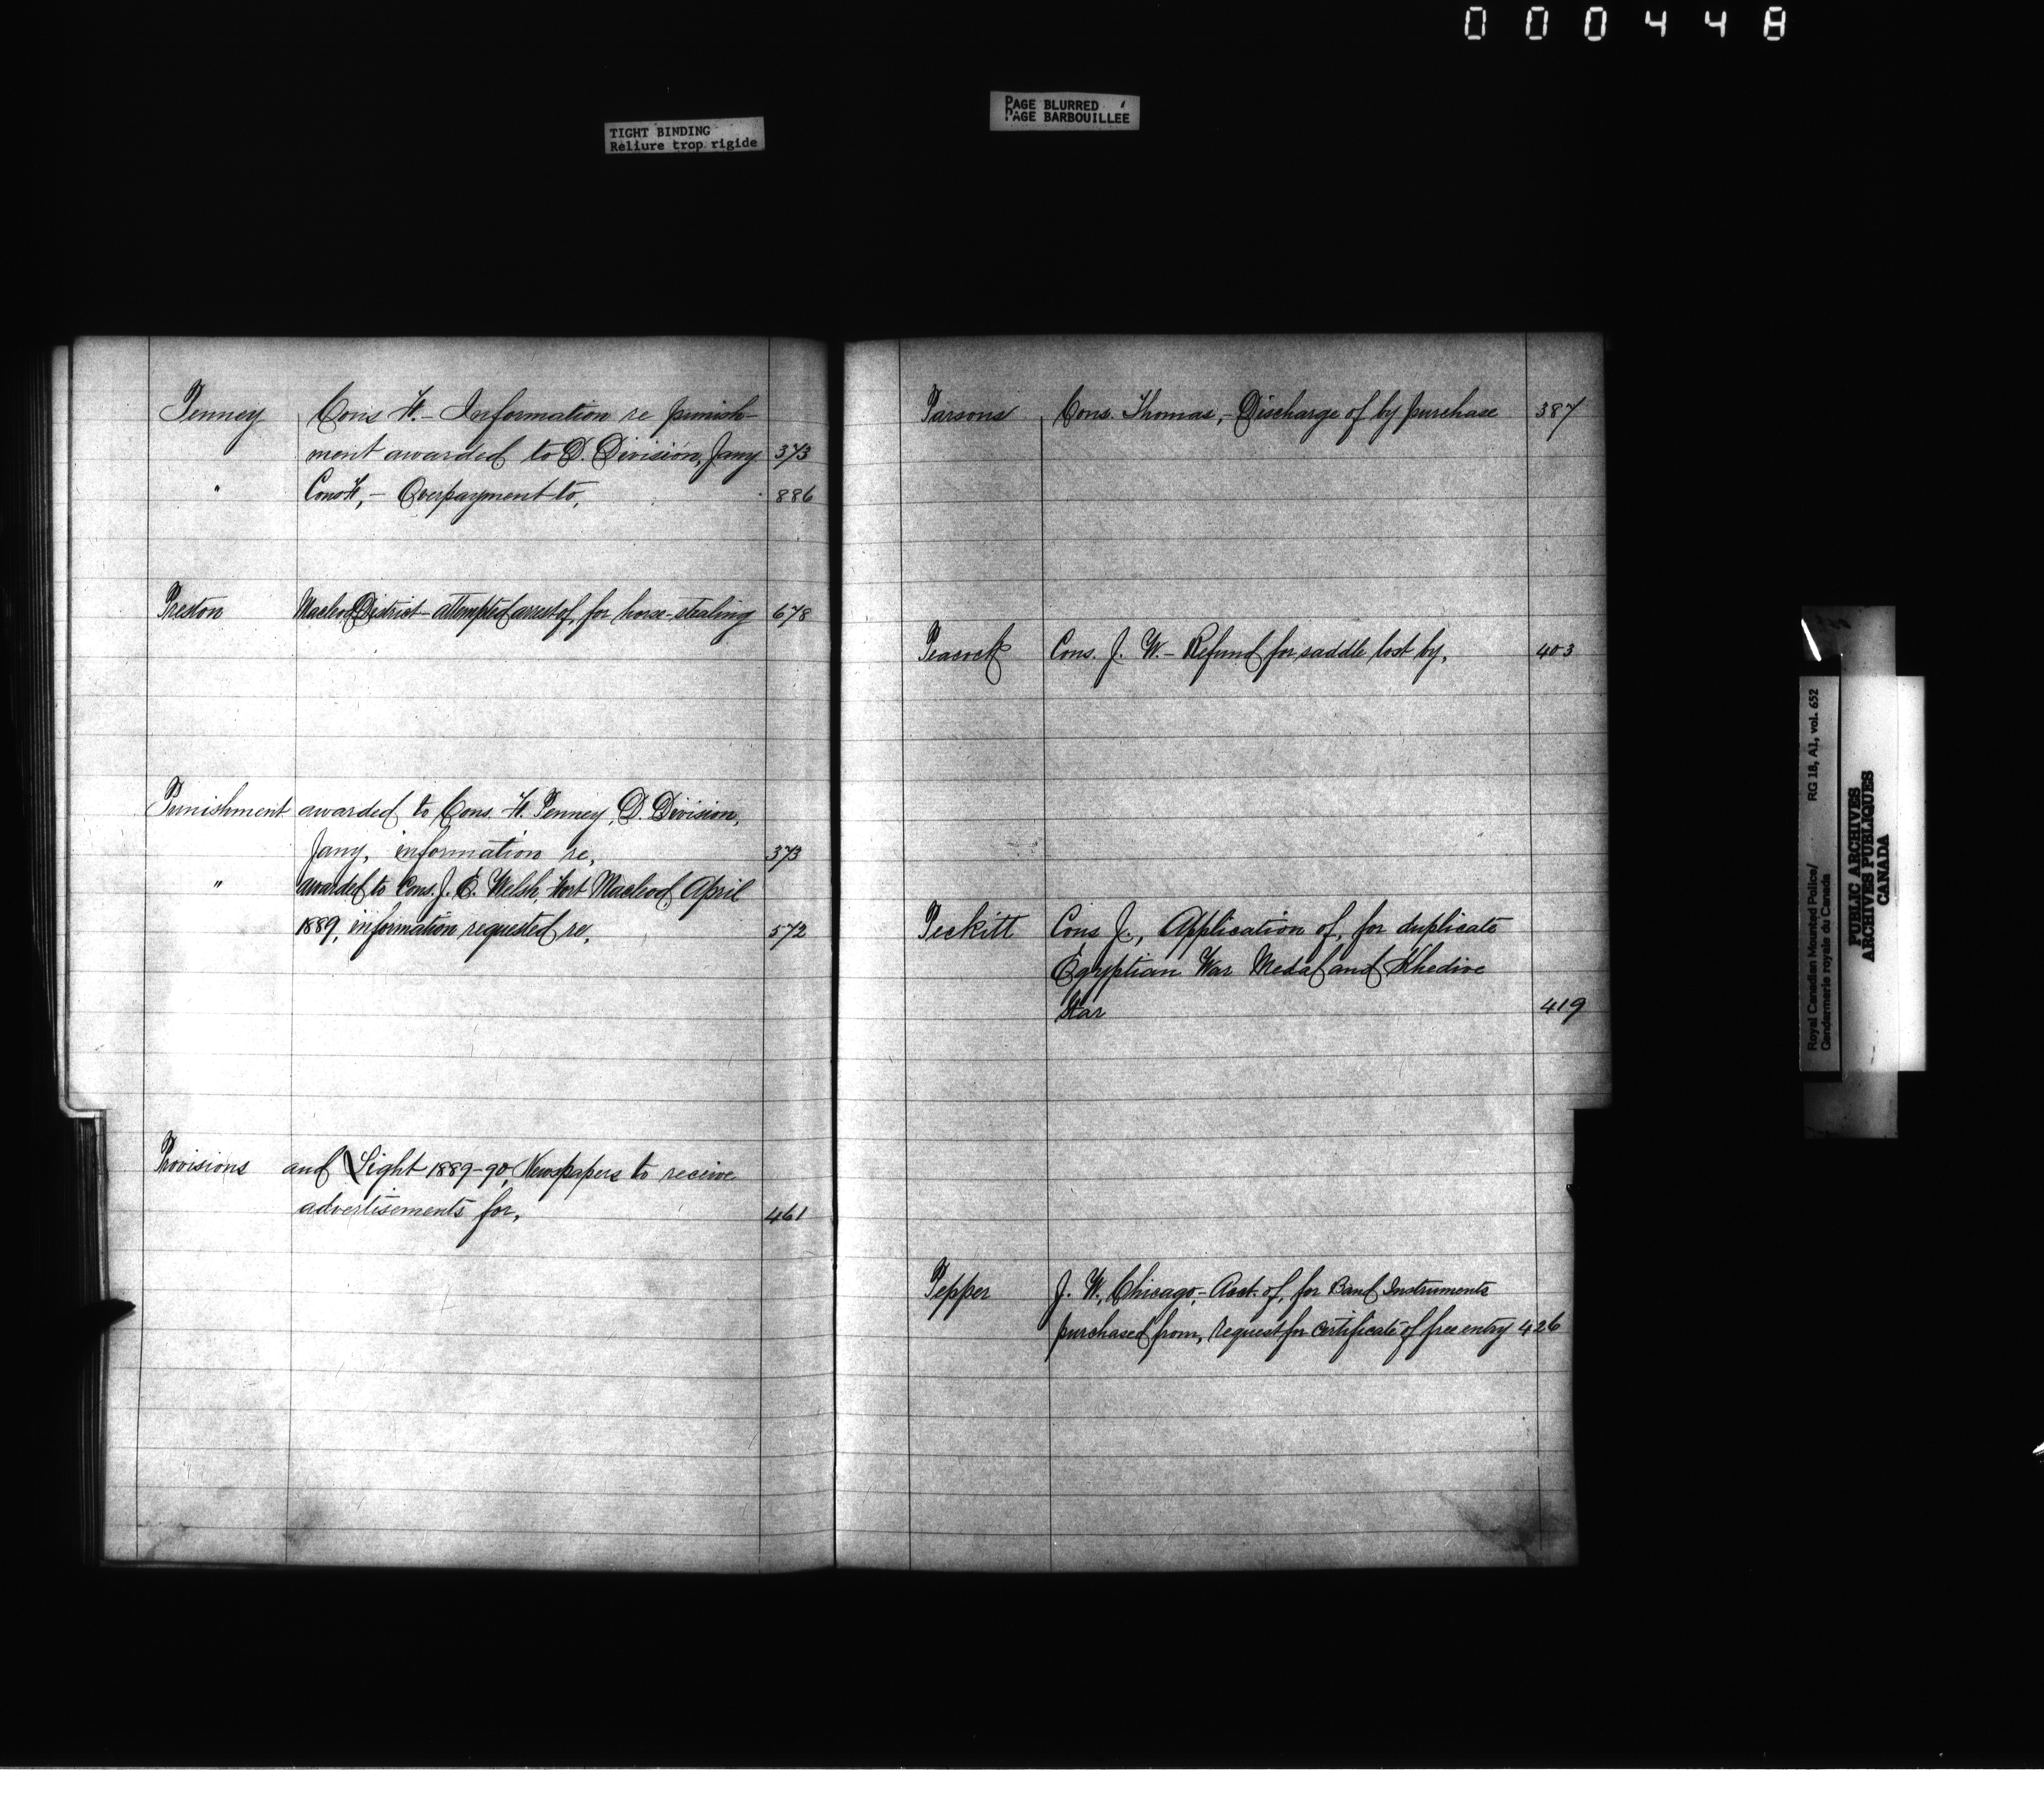 000448
TIGHT BINDING
Reliure trop rigide
PAGE BLURRED
PAGE BARBOUILLÉE
Penney Cons H. - Information re punish-
ment awarded to D. Division, Jany 373
" Cons H, - Overpayment to, 886
Preston Macleod District - attempted arrest of, for horse-stealing 678
Punishment awarded to Cons. H. Penney, D. Division,
Jany, information re, 373
" awarded to Cons. J. E. Welsh, Fort Macleod April
1889, information requested re, 572
Provisions and Light 1889-90, Newspapers to receive
advertisements for, 461
Parsons Cons. Thomas, - Discharge of by purchase 387
Peacock Cons. J. W. - Refund for saddle lost by, 403
Peckitt Cons J., Application of, for duplicate
Egyptian War Medal and Khedive
Star 419
Pepper J. W., Chicago, - Acct. of, for Band Instruments
purchased from, request for certificate of free entry 426
Royal Canadian Mounted Police/ RG 18, A1, vol. 652
Gendarmerie royale du Canada
PUBLIC ARCHIVES
ARCHIVES PUBLIQUES
CANADA